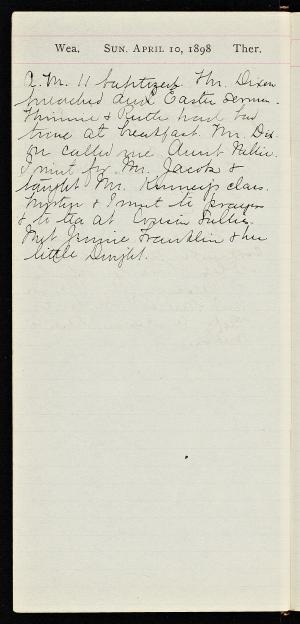 Wea. SUN. APRIL 10, 1898 Ther.
A.M. 11 baptized. Mr. Dixon
preached Easter sermon.
Minnie & Ruth had bad
time at breakfast. Mr. Dix-
on called me Aunt Nellie.
I went for Mr. Jacobs &
taught Mr. Kinney's class.
& I went to prayer
& to tea at Cousin
Met Jennie Franklin & her
little Dwight.